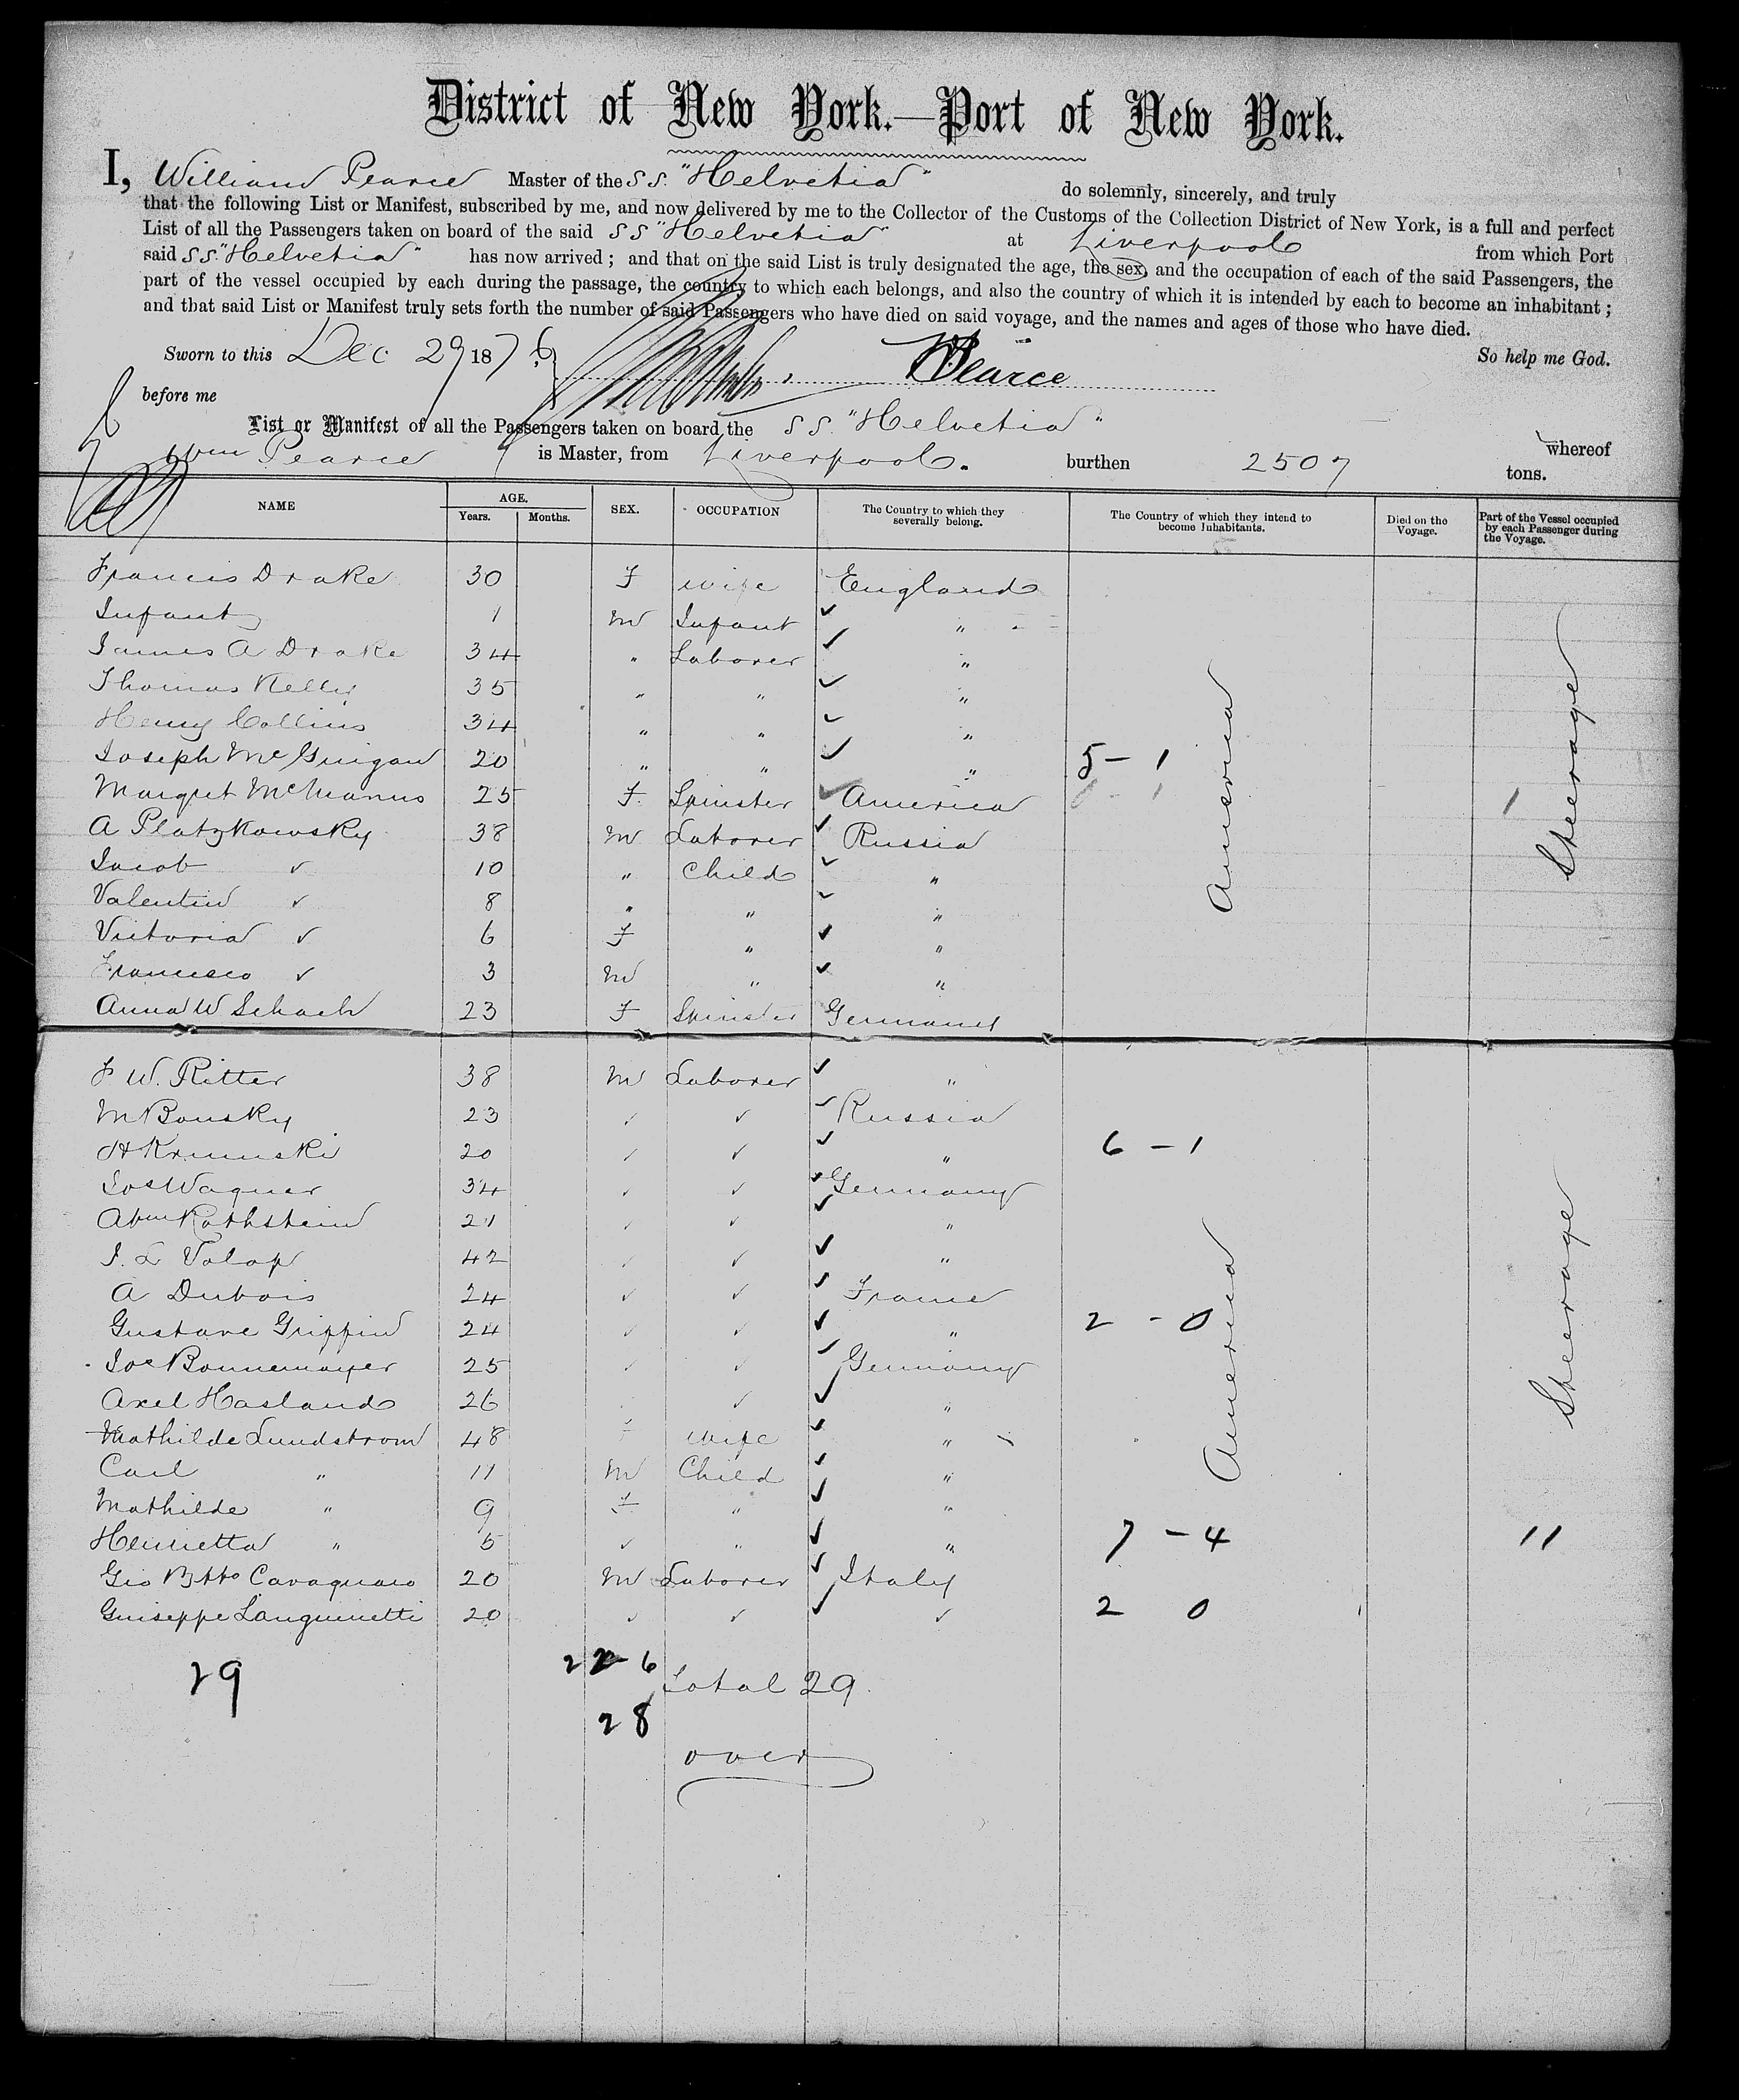 District of New York.—Port of New York.
I, William Pearce Master of the S S. "Helvetia" do solemnly, sincerely, and truly
that the following List or Manifest, subscribed by me, and now delivered by me to the Collector of the Customs of the Collection District of New York, is a full and perfect
List of all the Passengers taken on board of the said S S "Helvetia" at Liverpool from which Port
said S S. "Helvetia" has now arrived; and that on the said List is truly designated the age, the sex, and the occupation of each of the said Passengers, the
part of the vessel occupied by each during the passage, the country to which each belongs, and also the country of which it is intended by each to become an inhabitant;
and that said List or Manifest truly sets forth the number of said Passengers who have died on said voyage, and the names and ages of those who have died.
Sworn to this Dec 29 1876 So help me God.
W Pearce
before me
List or Manifest of all the Passengers taken on board the S S. "Helvetia" whereof
Wm Pearce is Master, from Liverpool. burthen 2507 tons.
NAME AGE. Years. Months. SEX. OCCUPATION The Country to which they severally belong. The Country of which they intend to become Inhabitants. Died on the Voyage. Part of the Vessel occupied by each Passenger during the Voyage.
Francis Drake 30 F wife England
Infant 1 M Infant "
James A Drake 34 " Laborer "
Thomas Kelly 35 " " "
Henry Collins 34 " " "
Joseph McGuigan 20 " " " 5 - 1
Margret McManus 25 F. Spinster America 0 - 1 1
A Platzkowsky 38 M Laborer Russia
Jacob ✓ 10 " Child "
Valentin ✓ 8 " " "
Victoria ✓ 6 F " "
Francisco ✓ 3 M " "
Anna W Schach 23 F Spinster Germany
America
Steerage
F W. Ritter 38 M Laborer "
M Bonsky 23 ✓ ✓ Russia
H Krumski 20 ✓ ✓ " 6 - 1
Jos Wagner 34 ✓ ✓ Germany
Abm Rothstein 21 ✓ ✓ "
J. L Volop 42 ✓ ✓ "
A Dubois 24 ✓ ✓ France
Gustave Griffin 24 ✓ ✓ " 2 - 0
Joe Bonnemayer 25 ✓ ✓ Germany
Axel Hasland 26 ✓ "
Mathilde Lundstrom 48 F wife "
Carl " 11 M Child "
Mathilde " 9 F " "
Henrietta " 5 ✓ " " 7 - 4 11
Gio Btto Cavagnaro 20 M Laborer Italy
Guiseppe Languinetti 20 ✓ ✓ ✓ 2 0
America
Steerage
29 22 6 Total 29.
28
over